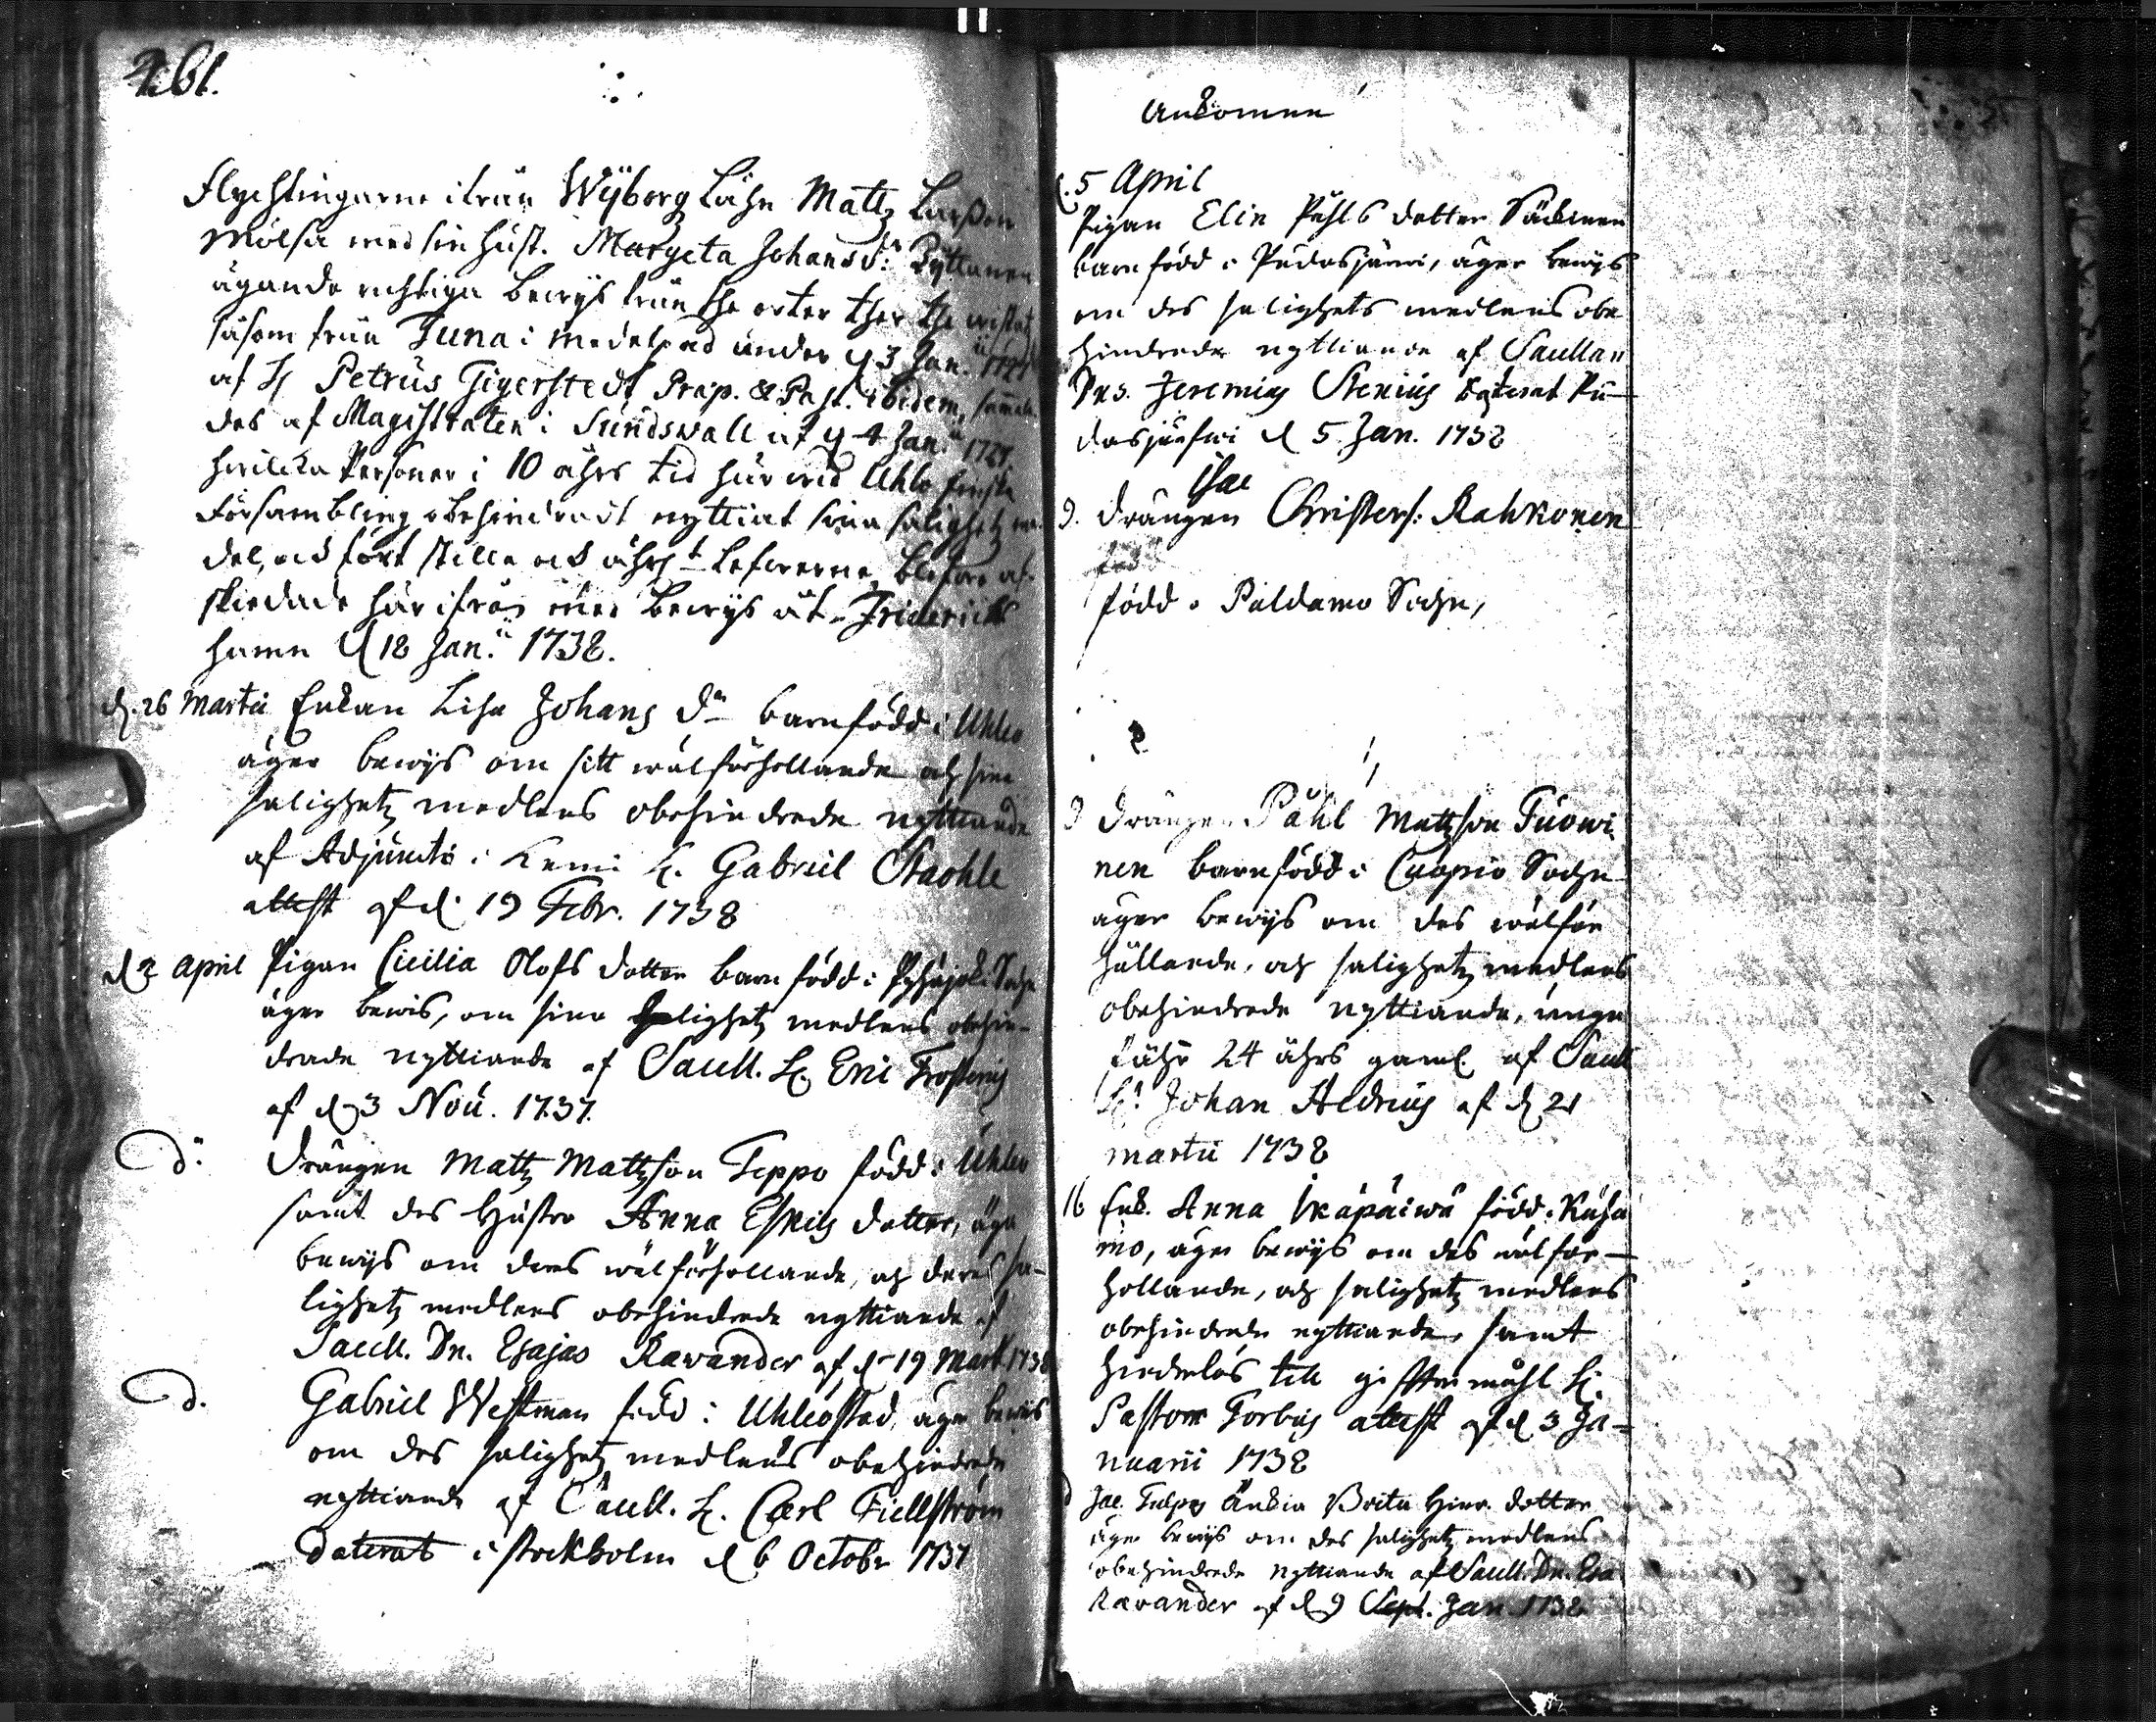 261.
Flychtingarne ifrån Wÿborg Lähn Mattz Larßon
Mölsä med sin hust. Margeta Johansd:r Pyttanen
ägande richtiga bewÿs från the orter ther the wistat
såsom från Tuna i Medelpad under d 3 Jan:ii 1728
af H Petrus Gigerstedt Præp. & Past. ibidem, samt
des af Magistraten i Sundswall af d 4 Jan:ii 1728
hwilcka Personer i 10 åhrs tid här wid Uhlo
Försambling obehindradt nyttiat sina salighetz me-
del, och fört stilla och åhrl:t Lefwerne, blefwo af-
skiedade här ifrån med bewÿs åt Fridericks
hamn d 18 Jan:ii 1738.
d. 26 Martii Enkan Lisa Johans d:r barnfödd i Uhleo
äger bewÿs om sitt wälförhollande och sine
salighetz medlens obehindrade nyttiande
af Adjuncto i Kemi H. Gabriel Stachle
attest af d. 19 Febr. 1738
d 2 April Pigan Cicilia Olofs dotter barnfödd i Pyhäjoki Sochn
äger bewis, om sine salighetz medlens obehin-
drade nyttiande af Sacell. H. Eric Frosterus
af d 3 Nov. 1737.
d:o Drängen Mattz Mattzson Teppo född i Uhleo
samt des Hustro Anna Eskils dotter, äga
bewÿs om deres wälförhollande, och deres sa-
lighetz medlens obehindrade nyttiande af
Sacell. Dn. Esajas Ravander af d 19 Mart. 1738
d. Gabriel Westman född i Uhleåstad, äger bewis
om des salighetz medlens obehindrade
nyttiande af Sacell. H. Carl Fiellström
daterat i Stockholm d 6 Octobr 1737
Ankomne
d. 5 April
Pigan Elin Påhls dotter Säckinen
barnfödd i Pudasjärwi, äger bewÿs
om des salighets medlens obe
hindrade nyttiande af Sacellan
Dns. Jeremias Stenius dateradt Pu-
dasjärfwi d 5 Jan. 1738
Isac
9. Drängen Christers. Rahkonen
född
född i Paldamo Sochn,
9 Drängen Påhl Mattzson Tuowi
nen barnfödd i Cuopio Sochn
äger bewÿs om des wälför
hållande, och salighetz medlens
obehindrade nyttiande, unge
fähr 24 åhrs gaml af Sacell
H:r Johan Aldrius af d 21
martii 1738
16 Enk. Anna Ikäpäiwä född i Kusa
mo, äger bewÿs om des wälför-
hollande, och salighetz medlens
obehindrade nyttiande, samt
hinderlös till gifftermåhl H.
Pastor Forbus attest af d 3 Ja-
nuarii 1738
d Jac. Tulpos Änkia Brita Hinr. dotter
äger bewÿs om des salighetz medlens
obehindrade nyttiande af Sacell. Dn. Esa.
Ravander af d 9 Sept. Jan. 1738